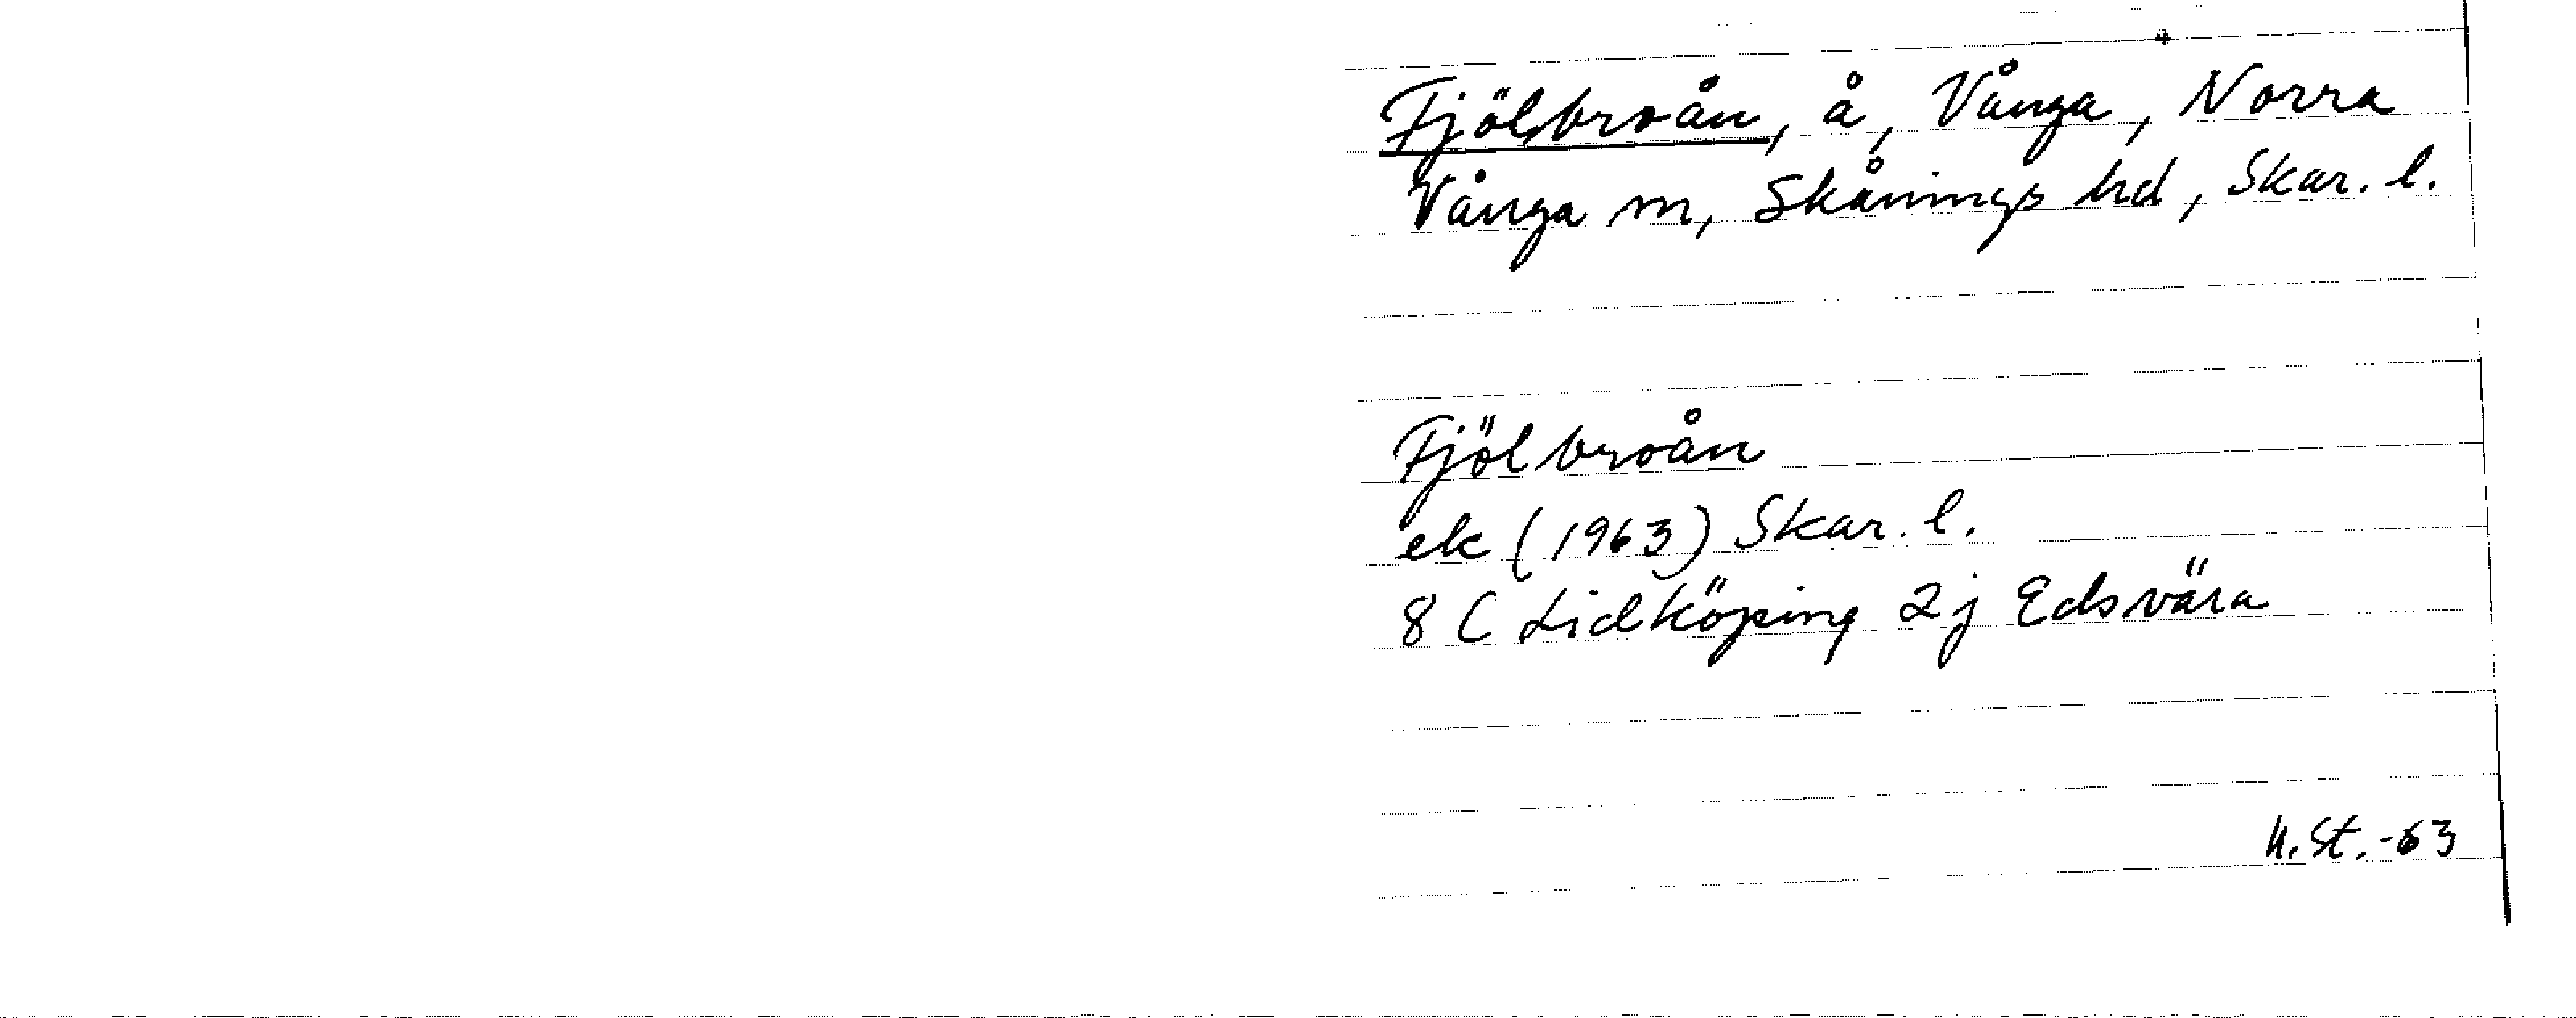 Fjölbroån, å, Vånga, Norra
Vånga sn, Skånings hd, Skar. l.
Fjölbroån
ek (1963) Skar. l.
8 C Lidköping 2j Edsvära
H. St. -63